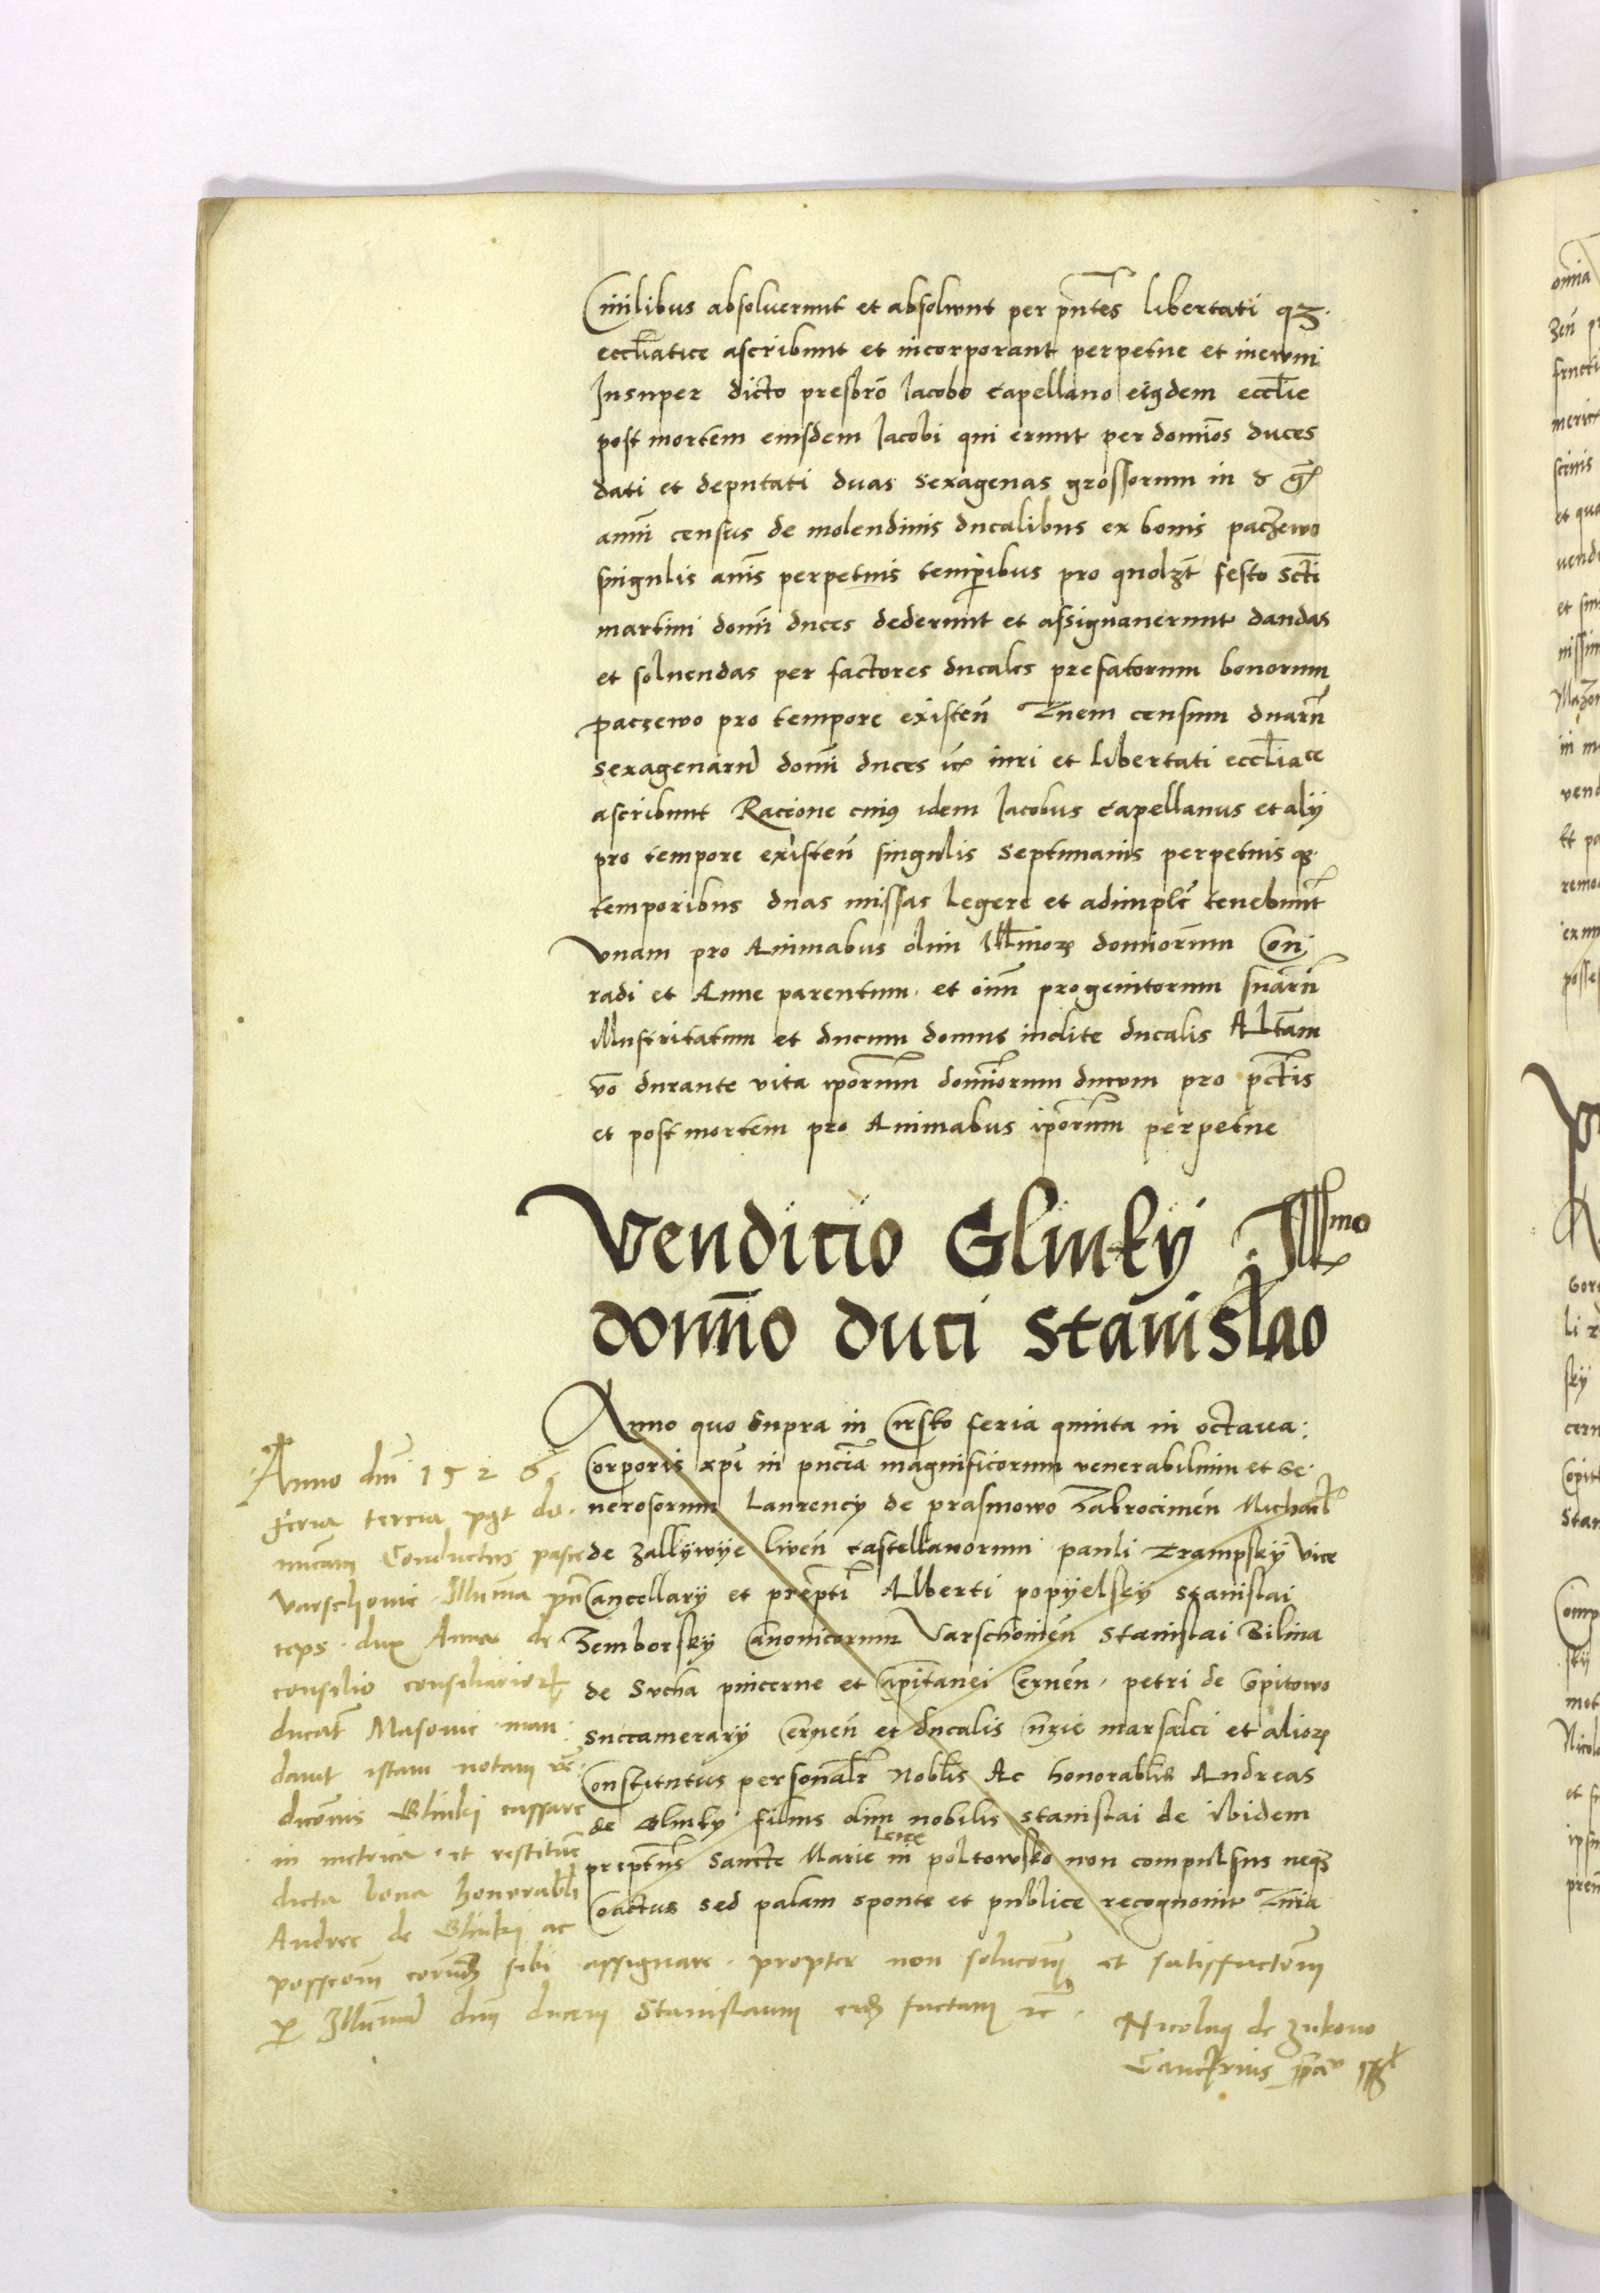 Civilibus absoluerunt et absolvunt per pn̄tes libertati qȝ
eccl̄iatice ascribunt et incorporant perpetue et in ewm
Insuper dicto presbrō Iacobo capellano eiꝰdem eccl̄ie
post mortem eiusdem Iacobi qui erunt per domīos duces
dati et deputati duas sexagenas grossorum in
annī census de molendinis ducalibus ex bonis paczewo
singulis anīs perpetuis temp̄ibus pro quolȝt festo Scti
martini domī duces dederunt et assignauerunt dandas
et soluendas per factores ducales prefatorum bonorum
paczewo pro tempore existen̄ Quem censum duarū
sexagenarū domī duces iuri et libertati eccl̄iatce
ascribunt Racione cuiꝰ idem Iacobus capellanus et alij
pro tempore existen̄ singulis septimanis perpetuis qȝ
temporibus duas missas legere et adimplē tenebunt̄
Vnam pro Animabus olim Ill̄moꝝ domīorum Con
radi et Anne parentum et oīm progenitorum suarū
illustritatum et ducum domus inclite ducalis Altam
vō durante vita ip̄orum domīorum ducum pro pctīs
et post mortem pro Animabus ip̄orum perpetue
Venditio Glinky Illmo
domīo duci Stanislao
Anno quo supra in Cirsko feria quinta in octaua
Corporis xp̄i in pn̄cia magnificorum venerabilium et Ge
nerosorum Laurency de prasmowo Zakrocimen̄ Michael
de Zallywye liwen̄ castellanorum pauli Trampsky vice
Cancellary et prep̄ti Alberti popyelsky Stanislai
Zemborsky Canonicorum Varschouien̄ Stanislai Bilina
de Sucha pincerne et Capitanei Cernen̄ petri de Copitowo
succamerary Cernen̄ et ducalis Curie marsalci et alioꝝ
Constitutus personal̄r Nobl̄is Ac honorabl̄is Andreas
de Glinky filius olim nobilis Stanislai de ibidem
prep̄tus Sancte Marie in poltowsko non compulsus neqȝ
Coactus sed palam sponte et publice recognouit Quia
Anno dnī 1526
feria tercia pꝰt do
nicam Conductus pasce
Varschouie Illum̄a prin
ceps dux Anna de
consilio consiliarioꝝ
ducatꝰ Masouie man
dauit istam notam
dicōnis Glinki cassare
in metrica et restitue
dicta bona honorabli
Andree de Glinki ac
possessiom̄ eorundȝ sibi assignare propter non soluconē et satisfactōem
per Illumū dnm̄ ducem Stanislaum factam rc
Nicolaꝰ de Zukowo
Cancellarius